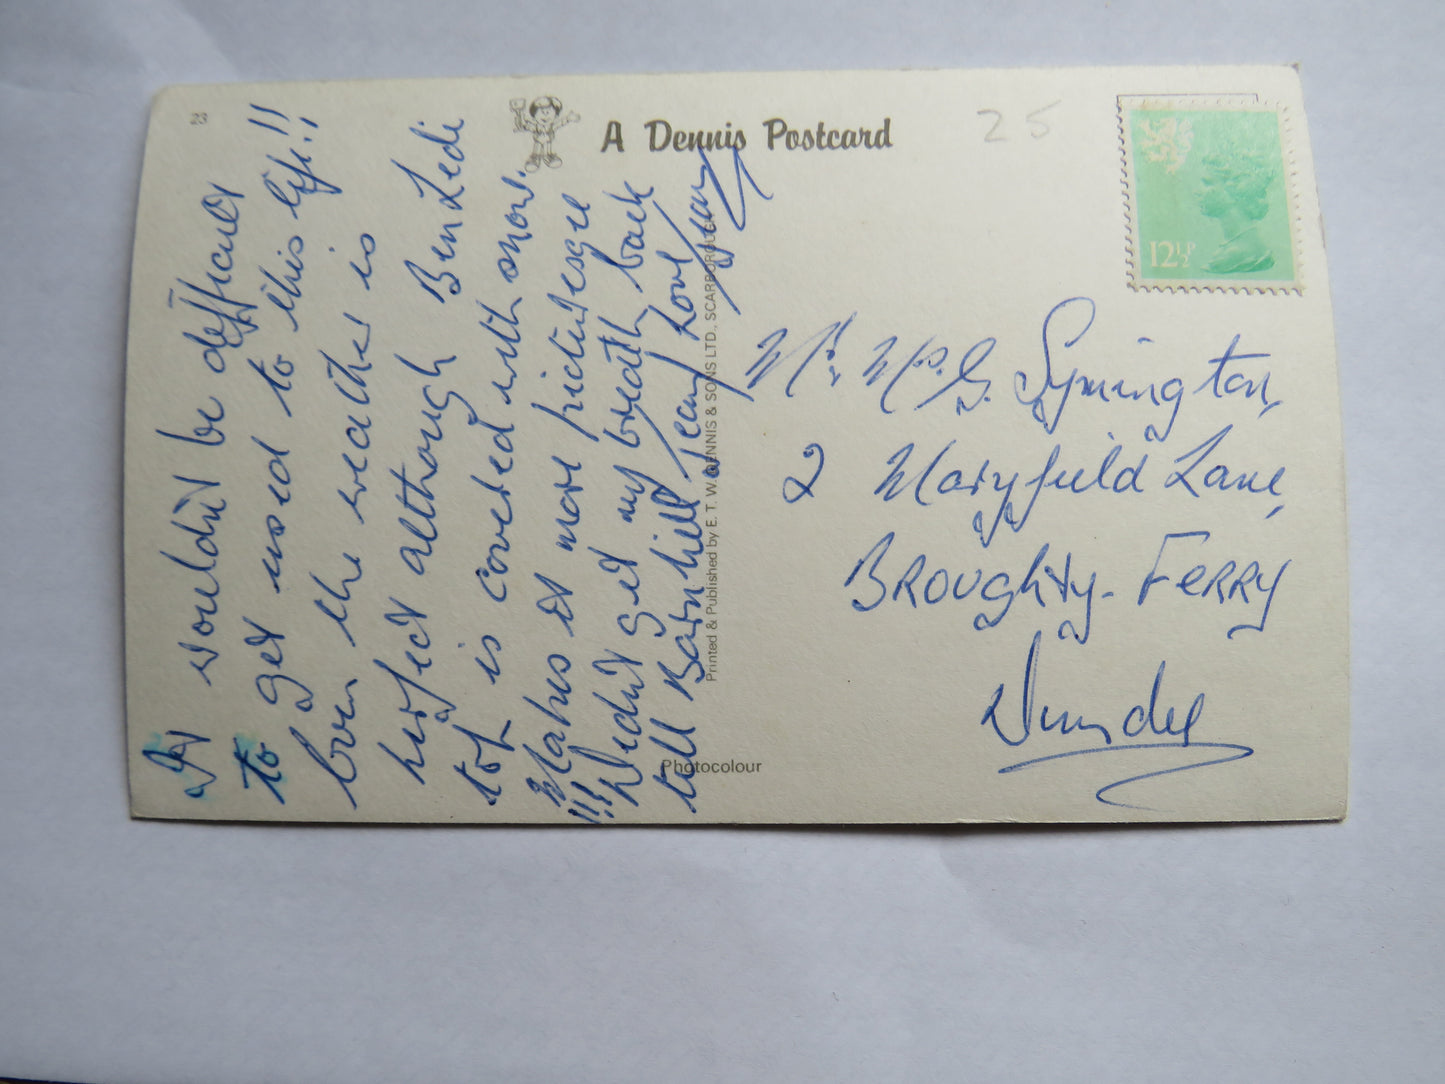 23
A Dennis Postcard
25
12½P
It wouldn't be difficult
to get used to this life!!
Even the weather is
perfect although Ben Ledi
top is covered with snow.
Makes it more picturesque
!!! Didn't get my breath back
till Barnhill
Love
Printed & Published by E. T. W. DENNIS & SONS LTD., SCARBOROUGH
Photocolour
Mr. Mrs. G. Symington,
2 Maryfield Lane,
BROUGHTY-FERRY
Dundee